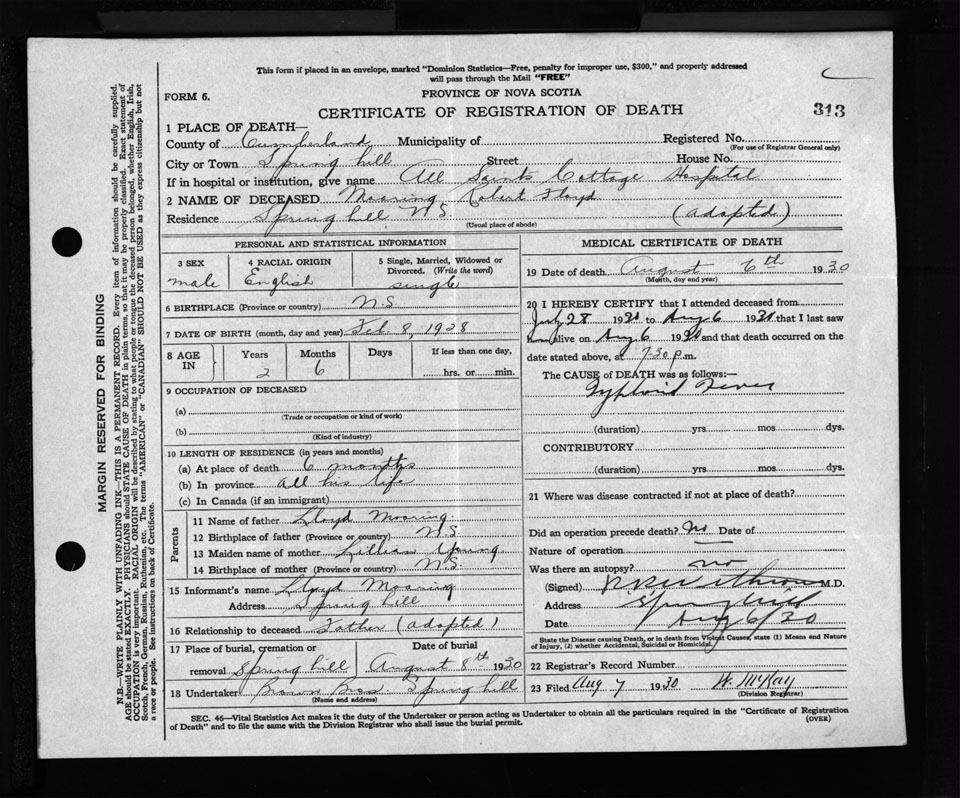 This form if placed in an envelope, marked "Dominion Statistics—Free, penalty for improper use, $300," and properly addressed
will pass through the Mail "FREE"
PROVINCE OF NOVA SCOTIA
FORM 6.
CERTIFICATE OF REGISTRATION OF DEATH
313
1 PLACE OF DEATH—
County of Cumberland Municipality of Registered No.
(For use of Registrar General only)
City or Town Spring hill Street House No.
If in hospital or institution, give name All Saints Cottage Hospital
2 NAME OF DECEASED Mooring Robert Floyd
Residence Spring hill N.S. (adopted)
(Usual place of abode)
PERSONAL AND STATISTICAL INFORMATION
3 SEX 4 RACIAL ORIGIN 5 Single, Married, Widowed or
Divorced. (Write the word)
male English single
6 BIRTHPLACE (Province or country) N.S.
7 DATE OF BIRTH (month, day and year) Feb 8, 1928
8 AGE IN Years Months Days If less than one day,
2 6 hrs. or min.
9 OCCUPATION OF DECEASED
(a)
(Trade or occupation or kind of work)
(b)
(Kind of industry)
10 LENGTH OF RESIDENCE (in years and months)
(a) At place of death 6 months
(b) In province all his life
(c) In Canada (if an immigrant)
Parents
11 Name of father Lloyd Mooring
12 Birthplace of father (Province or country) N.S.
13 Maiden name of mother Lillian Young
14 Birthplace of mother (Province or country) N.S.
15 Informant's name Lloyd Mooring
Address Spring hill
16 Relationship to deceased Father (adopted)
17 Place of burial, cremation or Date of burial
removal Spring hill August 8th 1930
18 Undertaker Brown Bros Spring hill
(Name and address)
MEDICAL CERTIFICATE OF DEATH
19 Date of death August 6th 1930
(Month, day and year)
20 I HEREBY CERTIFY that I attended deceased from
July 28 1930 to Aug 6 1930 that I last saw
him alive on Aug 6 1930 and that death occurred on the
date stated above, at 7.30 p.m.
The CAUSE of DEATH was as follows:—
Typhoid Fever
(duration) yrs. mos. dys.
CONTRIBUTORY
(duration) yrs. mos. dys.
21 Where was disease contracted if not at place of death?
Did an operation precede death? No Date of
Nature of operation
Was there an autopsy? no
(Signed) M.D.
Address Springhill
Date Aug 6/30
State the Disease causing Death, or in death from Violent Causes, state (1) Means and Nature
of Injury, (2) whether Accidental, Suicidal or Homicidal.
22 Registrar's Record Number
23 Filed Aug 7 1930 W. McKay
(Division Registrar)
SEC. 46—Vital Statistics Act makes it the duty of the Undertaker or person acting as Undertaker to obtain all the particulars required in the "Certificate of Registration
of Death" and to file the same with the Division Registrar who shall issue the burial permit.
(OVER)
MARGIN RESERVED FOR BINDING
N.B.—WRITE PLAINLY WITH UNFADING INK—THIS IS A PERMANENT RECORD. Every item of information should be carefully supplied.
AGE should be stated EXACTLY. PHYSICIANS should STATE CAUSE OF DEATH in plain terms, so that it may be properly classified. Exact statement of
OCCUPATION is very important. RACIAL ORIGIN will be described by stating to what people or tongue the deceased person belonged, whether English, Irish,
Scotch, French, German, Russian, Ruthenian, etc. The terms "AMERICAN" or "CANADIAN" SHOULD NOT BE USED as they express citizenship but not
a race or people. See instructions on back of Certificate.